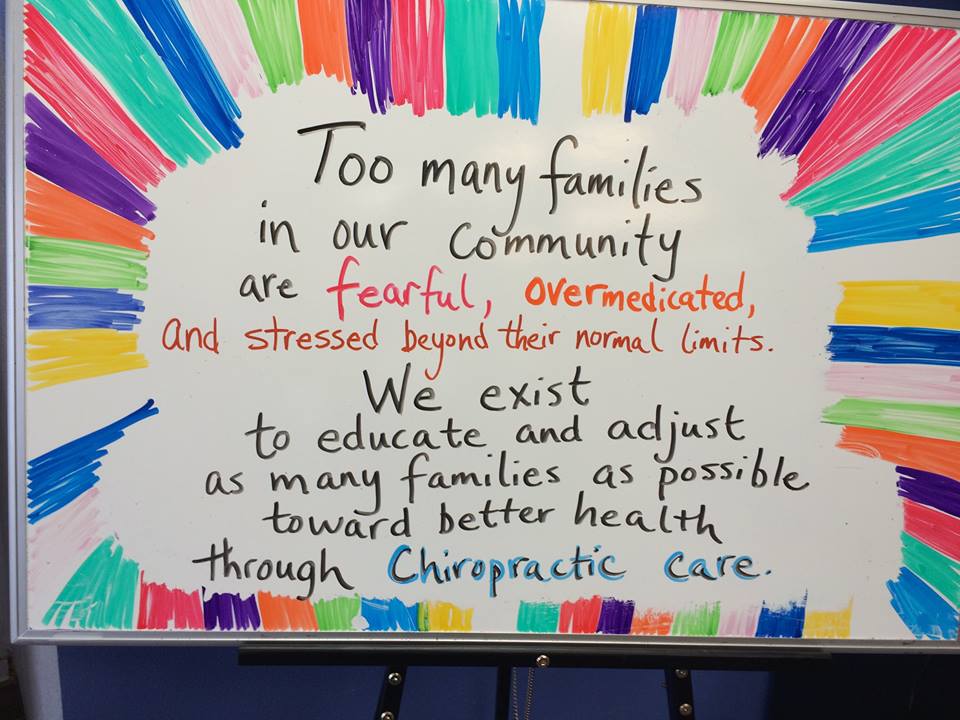 Too many families
in our community
are fearful, overmedicated,
and stressed beyond their normal limits.
We exist
to educate and adjust
as many families as possible
toward better health
through Chiropractic care.